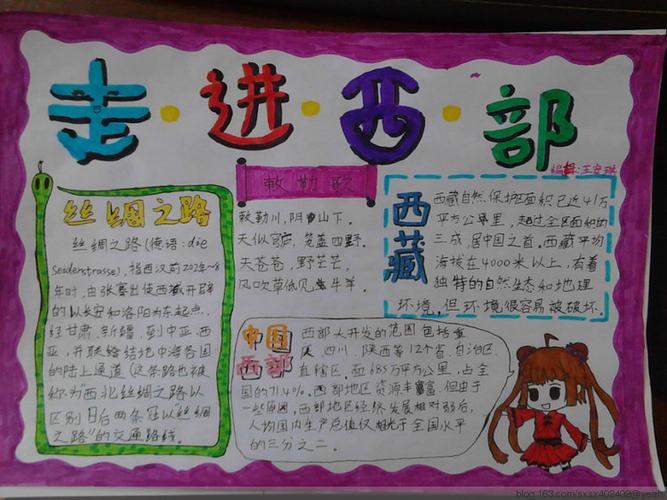 走·进·西·部
编辑:王安琪
丝绸之路
丝绸之路(德语:die
Seidenstrasse),指西汉前202年~8
年时,由张骞出使西域开辟
的以长安和洛阳为东起点,
经甘肃、新疆,到中亚、西
亚,并联络结地中海各国
的陆上通道(这条路也被
称为"西北丝绸之路以
区别日后两条冠以丝绸
之路"的交通路线。
敕勒歌
敕勒川,阴山下。
天似穹庐,笼盖四野。
天苍苍,野茫茫,
风吹草低见牛羊。
西藏
西藏自然保护区面积已近41万
平方公里,超过全区面积的
三成,居中国之首。西藏平均
海拔在4000米以上,有着
独特的自然生态和地理
环境,但环境很容易被破坏.
中国
西部
西部大开发的范围包括重
庆、四川、陕西等12个省、自治区、
直辖区.面685万平方公里,占全
国的71.4%。西部地区资源丰富,但由于
一些原因,西部地区经济发展相对弱后,
人均国内生产总值仅相当于全国水平
的三分之二。
blog.163.com/sxsx402402@yeah